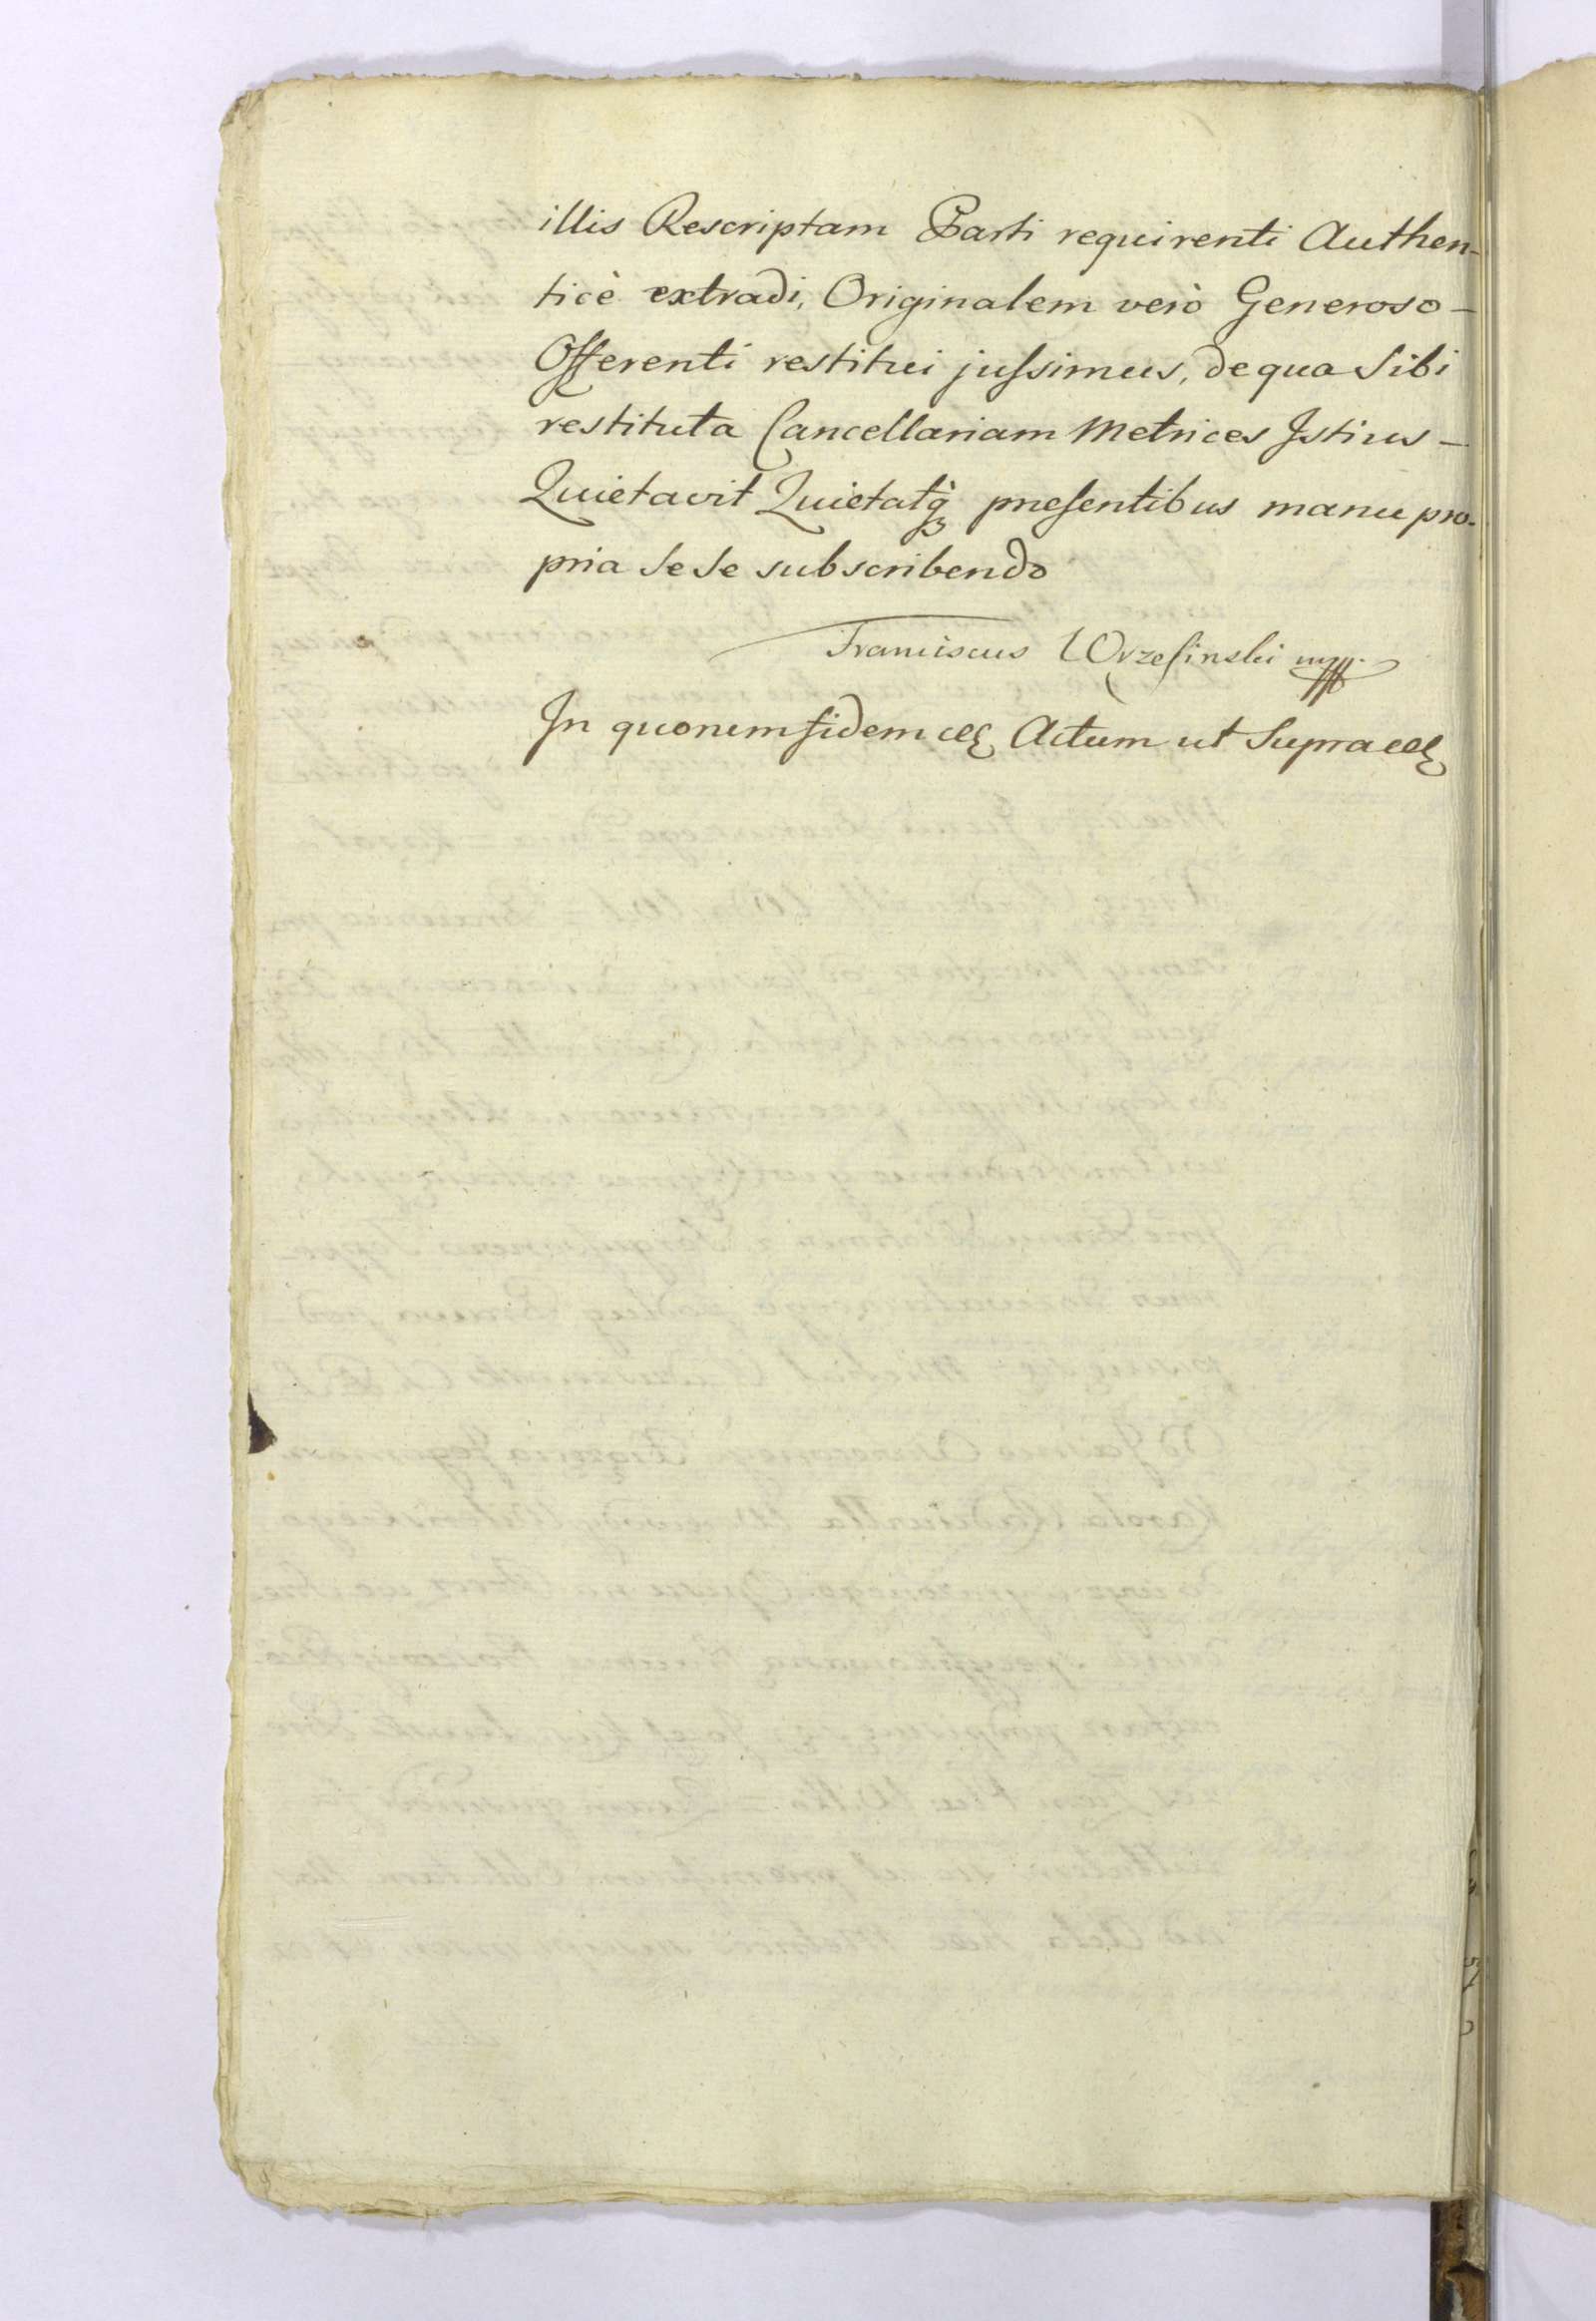 illis Rescriptam Parti requirenti Authen-
ticè extradi, Originalem verò Generoso-
Offerenti restitui jussimus, de qua Sibi
restituta Cancellariam Metrices Istius-
Quietavit Quietatq́ꝫ presentibus manu pro-
pria Se Se subscribendo
Franciscus Wrzesinski mpp.
In quorum fidem etc Actum ut Supra etc